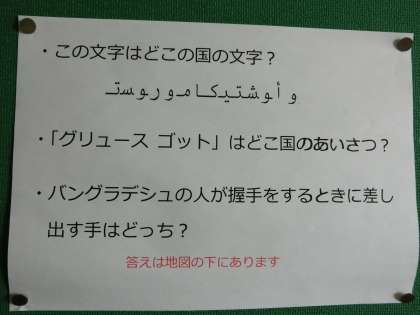 ・この文字はどこの国の文字？
و أ و ش ت ي ك ا م و ر و س ت ـ
・「グリュース ゴット」はどこ国のあいさつ？
・バングラデシュの人が握手をするときに差し
出す手はどっち？
答えは地図の下にあります